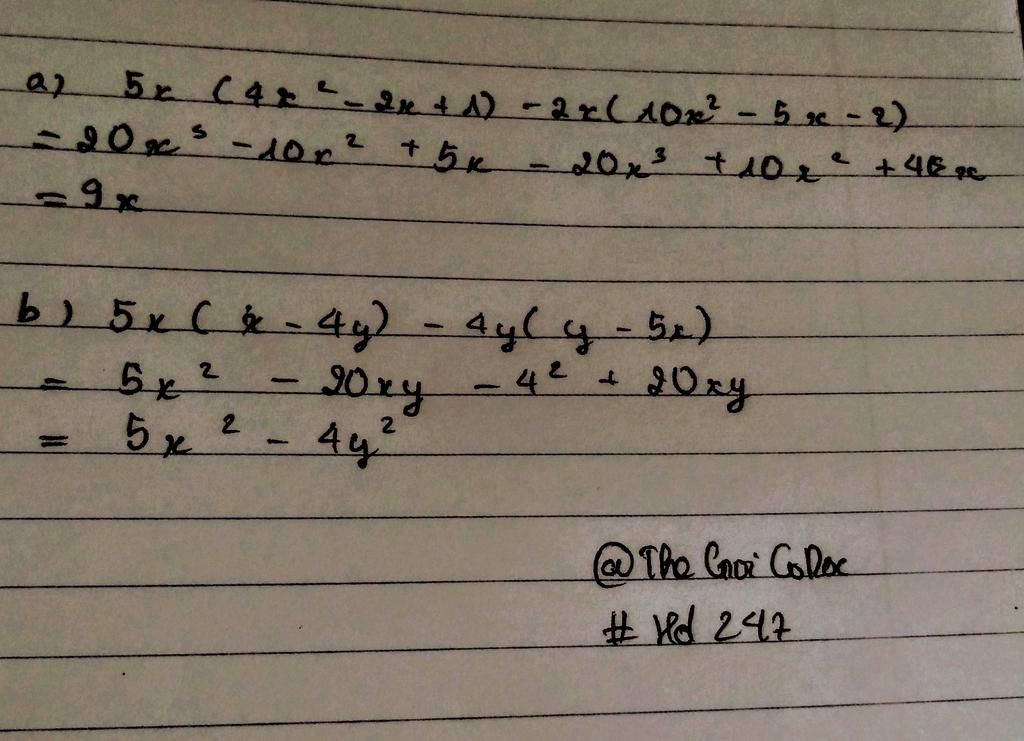 a) 5x (4x² - 2x + 1) - 2x( 10x² - 5x - 2)
= 20x³ - 10x² + 5x - 20x³ + 10x² + 4x
= 9x
b) 5x ( x - 4y) - 4y( y - 5x)
= 5x² - 20xy - 4² + 20xy
= 5x² - 4y²
# Hd 247